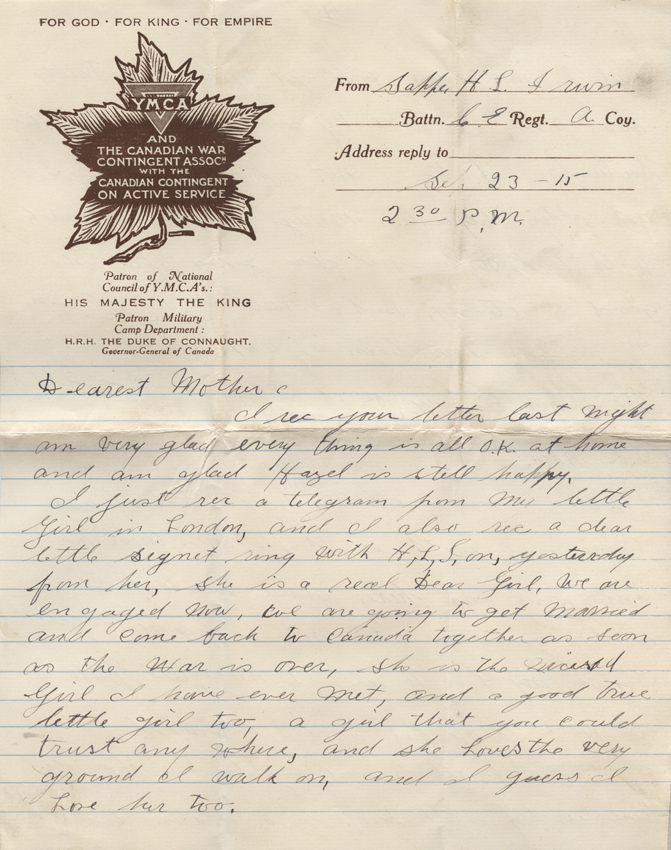 FOR GOD · FOR KING · FOR EMPIRE
YMCA
AND
THE CANADIAN WAR
CONTINGENT ASSOCN
WITH THE
CANADIAN CONTINGENT
ON ACTIVE SERVICE
Patron of National
Council of Y.M.C.A's.:
HIS MAJESTY THE KING
Patron Military
Camp Department:
H.R.H. THE DUKE OF CONNAUGHT,
Governor-General of Canada
From Sapper H L Irwin
Battn. C E Regt. A Coy.
Address reply to
Sep 23 - 15
2 30 P.M.
Dearest Mother
I rec your letter last night
am very glad every thing is all O.K. at home
and am glad Hazel is still happy.
I just rec a telegram from my little
Girl in London, and I also rec a dear
little signet ring with H.L.I, on, yesterday
from her, she is a real Dear Girl, We are
engaged now, we are going to get Married
and come back to Canada together as soon
as the War is over, she is the nicest
Girl I have ever met, and a good true
little girl too, a girl that you could
trust any where, and she Loves the very
ground I walk on, and I guess I
Love her too.